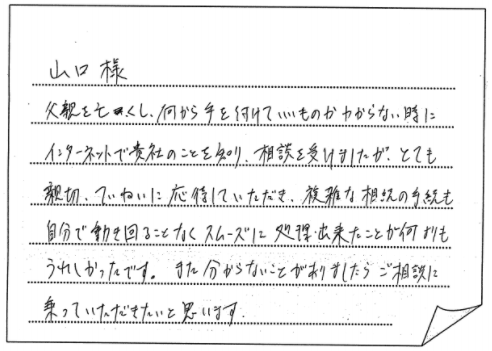 山口様
父親を亡くし、何から手を付けていいものかわからない時に
インターネットで貴社のことを知り、相談を受けましたが、とても
親切、ていねいに応待していただき、複雑な相続の手続も
自分で動き回ることなくスムーズに処理出来たことが何よりも
うれしかったです。また分からないことがありましたらご相談に
乗っていただきたいと思います。